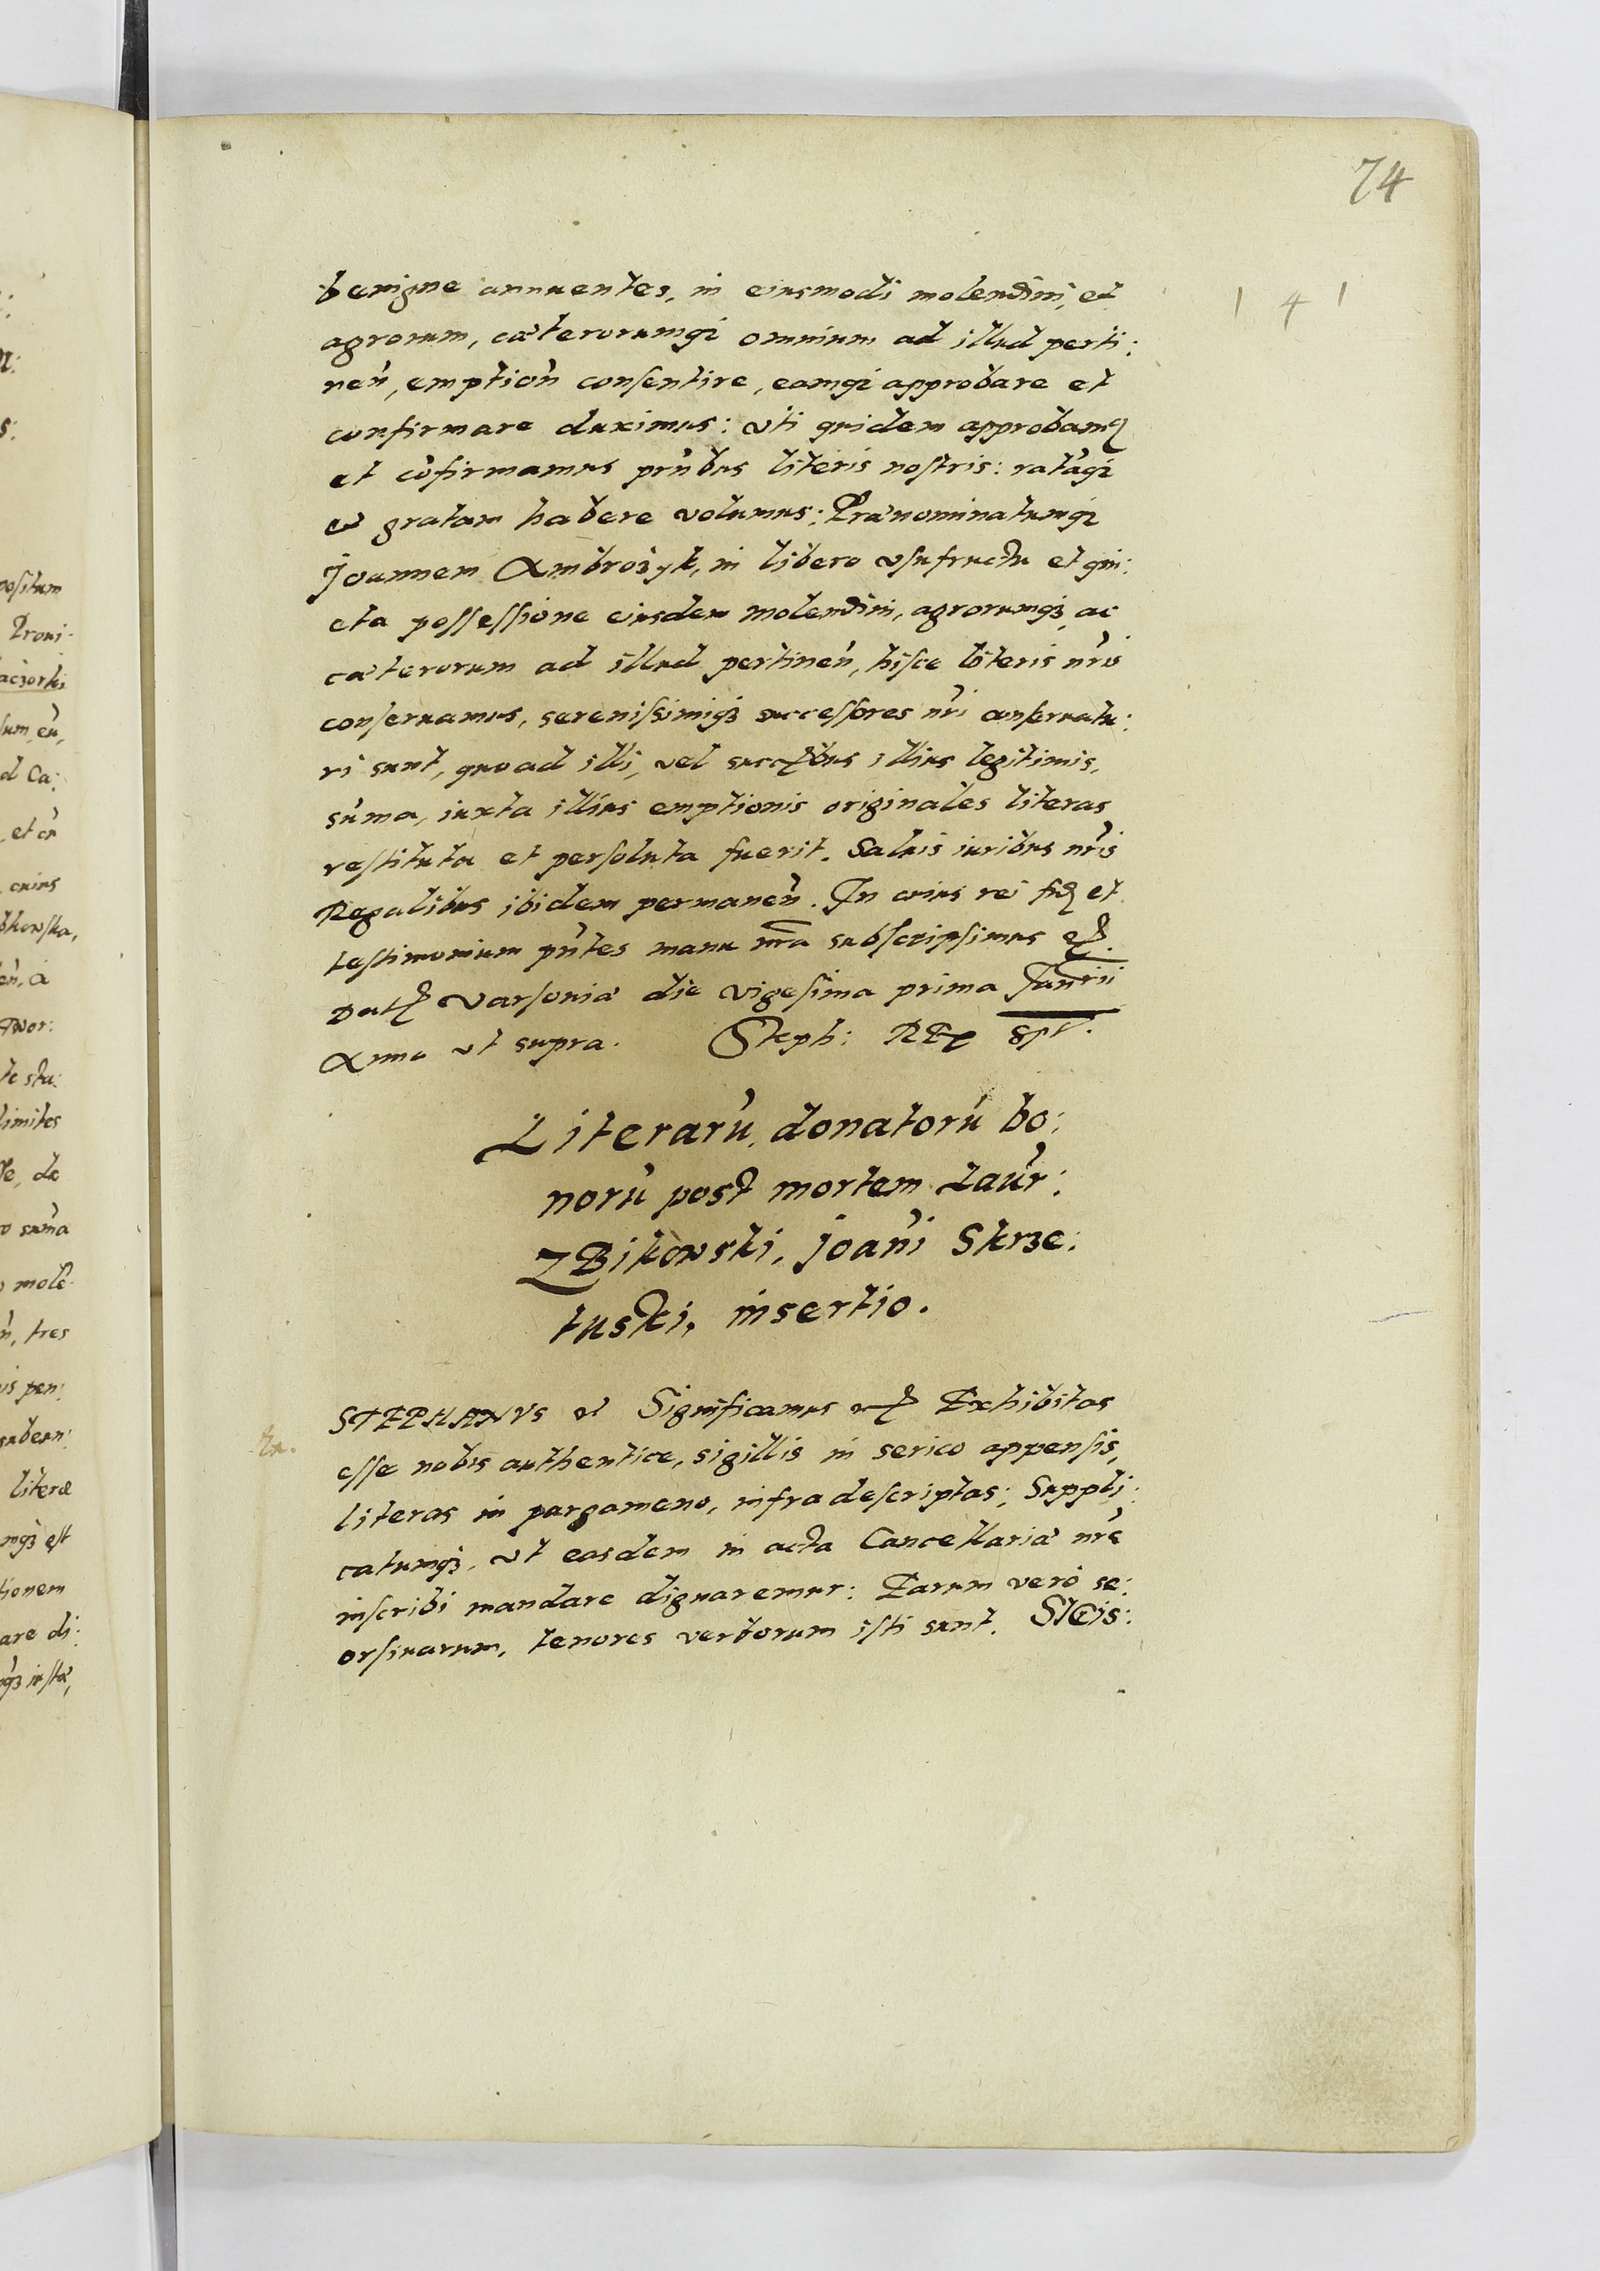 74
1 4 1
benigne annuentes, in eiusmodi molendini, et
agrorum, cæterorumqꝫ omnium ad illud perti:
neñ, emptioñ consentire, eamqꝫ approbare et
confirmare duximus: vti quidem approbamꝫ
et cõfirmamus pñtibus literis nostris: ratãqꝫ
et gratam habere volumus: Prænominatumqꝫ
Joannem Ambrozyk, in libero vsufructu et qui:
eta possessione eiusdem molendini, agrorumqꝫ, ac
cæterorum ad illud pertineñ, hisce literis nr̃is
conseruamus, serenissimiqꝫ successores nr̃i conseruatu:
ri sunt, quoad illi, vel succꝭbus illius legitimis,
sũma, iuxta illius emptionis originales literas
restituta et persoluta fuerit. Saluis iuribus nr̃is
Regalibus ibidem permaneñ. In cuius rei fidꝫ et
testimonium pñtes manu nr̃a subscripsimus etꝭ.
Datꝭ Varsouiæ die vigesima prima Januarii
Anno vt supra. Steph: REx sst.
Literarũ, donatorũ bo:
norũ post mortem Laur̃:
ZBikowski, Joañi Skrze:
tuski, insertio.
STEPHANVS etꝭ Significamus etꝭ Exhibitas
esse nobis authentice, sigillis in serico appensis,
literas in pargameno, infra descriptas; Suppli:
catumqꝫ, vt easdem in acta Cancellariæ nr̃e
inscribi mandare dignaremur: Earum verò se:
orsiuarum, tenores verborum isti sunt. SIGis: